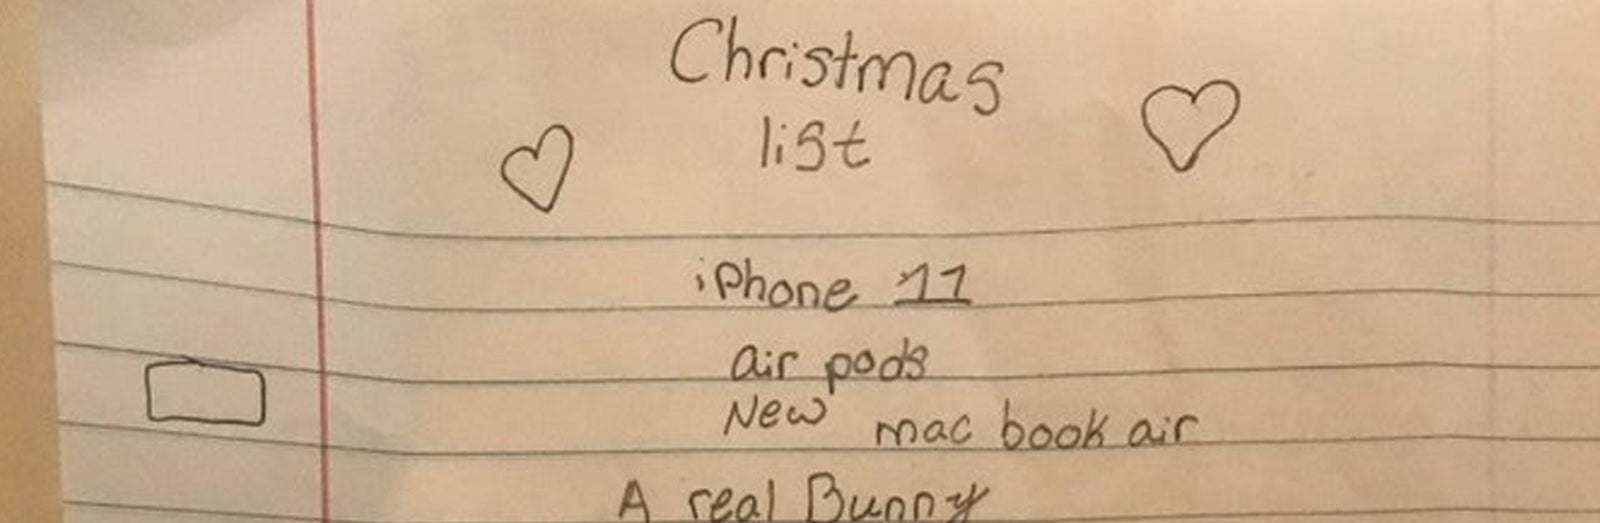 Christmas
list
iPhone 11
air pods
New mac book air
A real Bunny